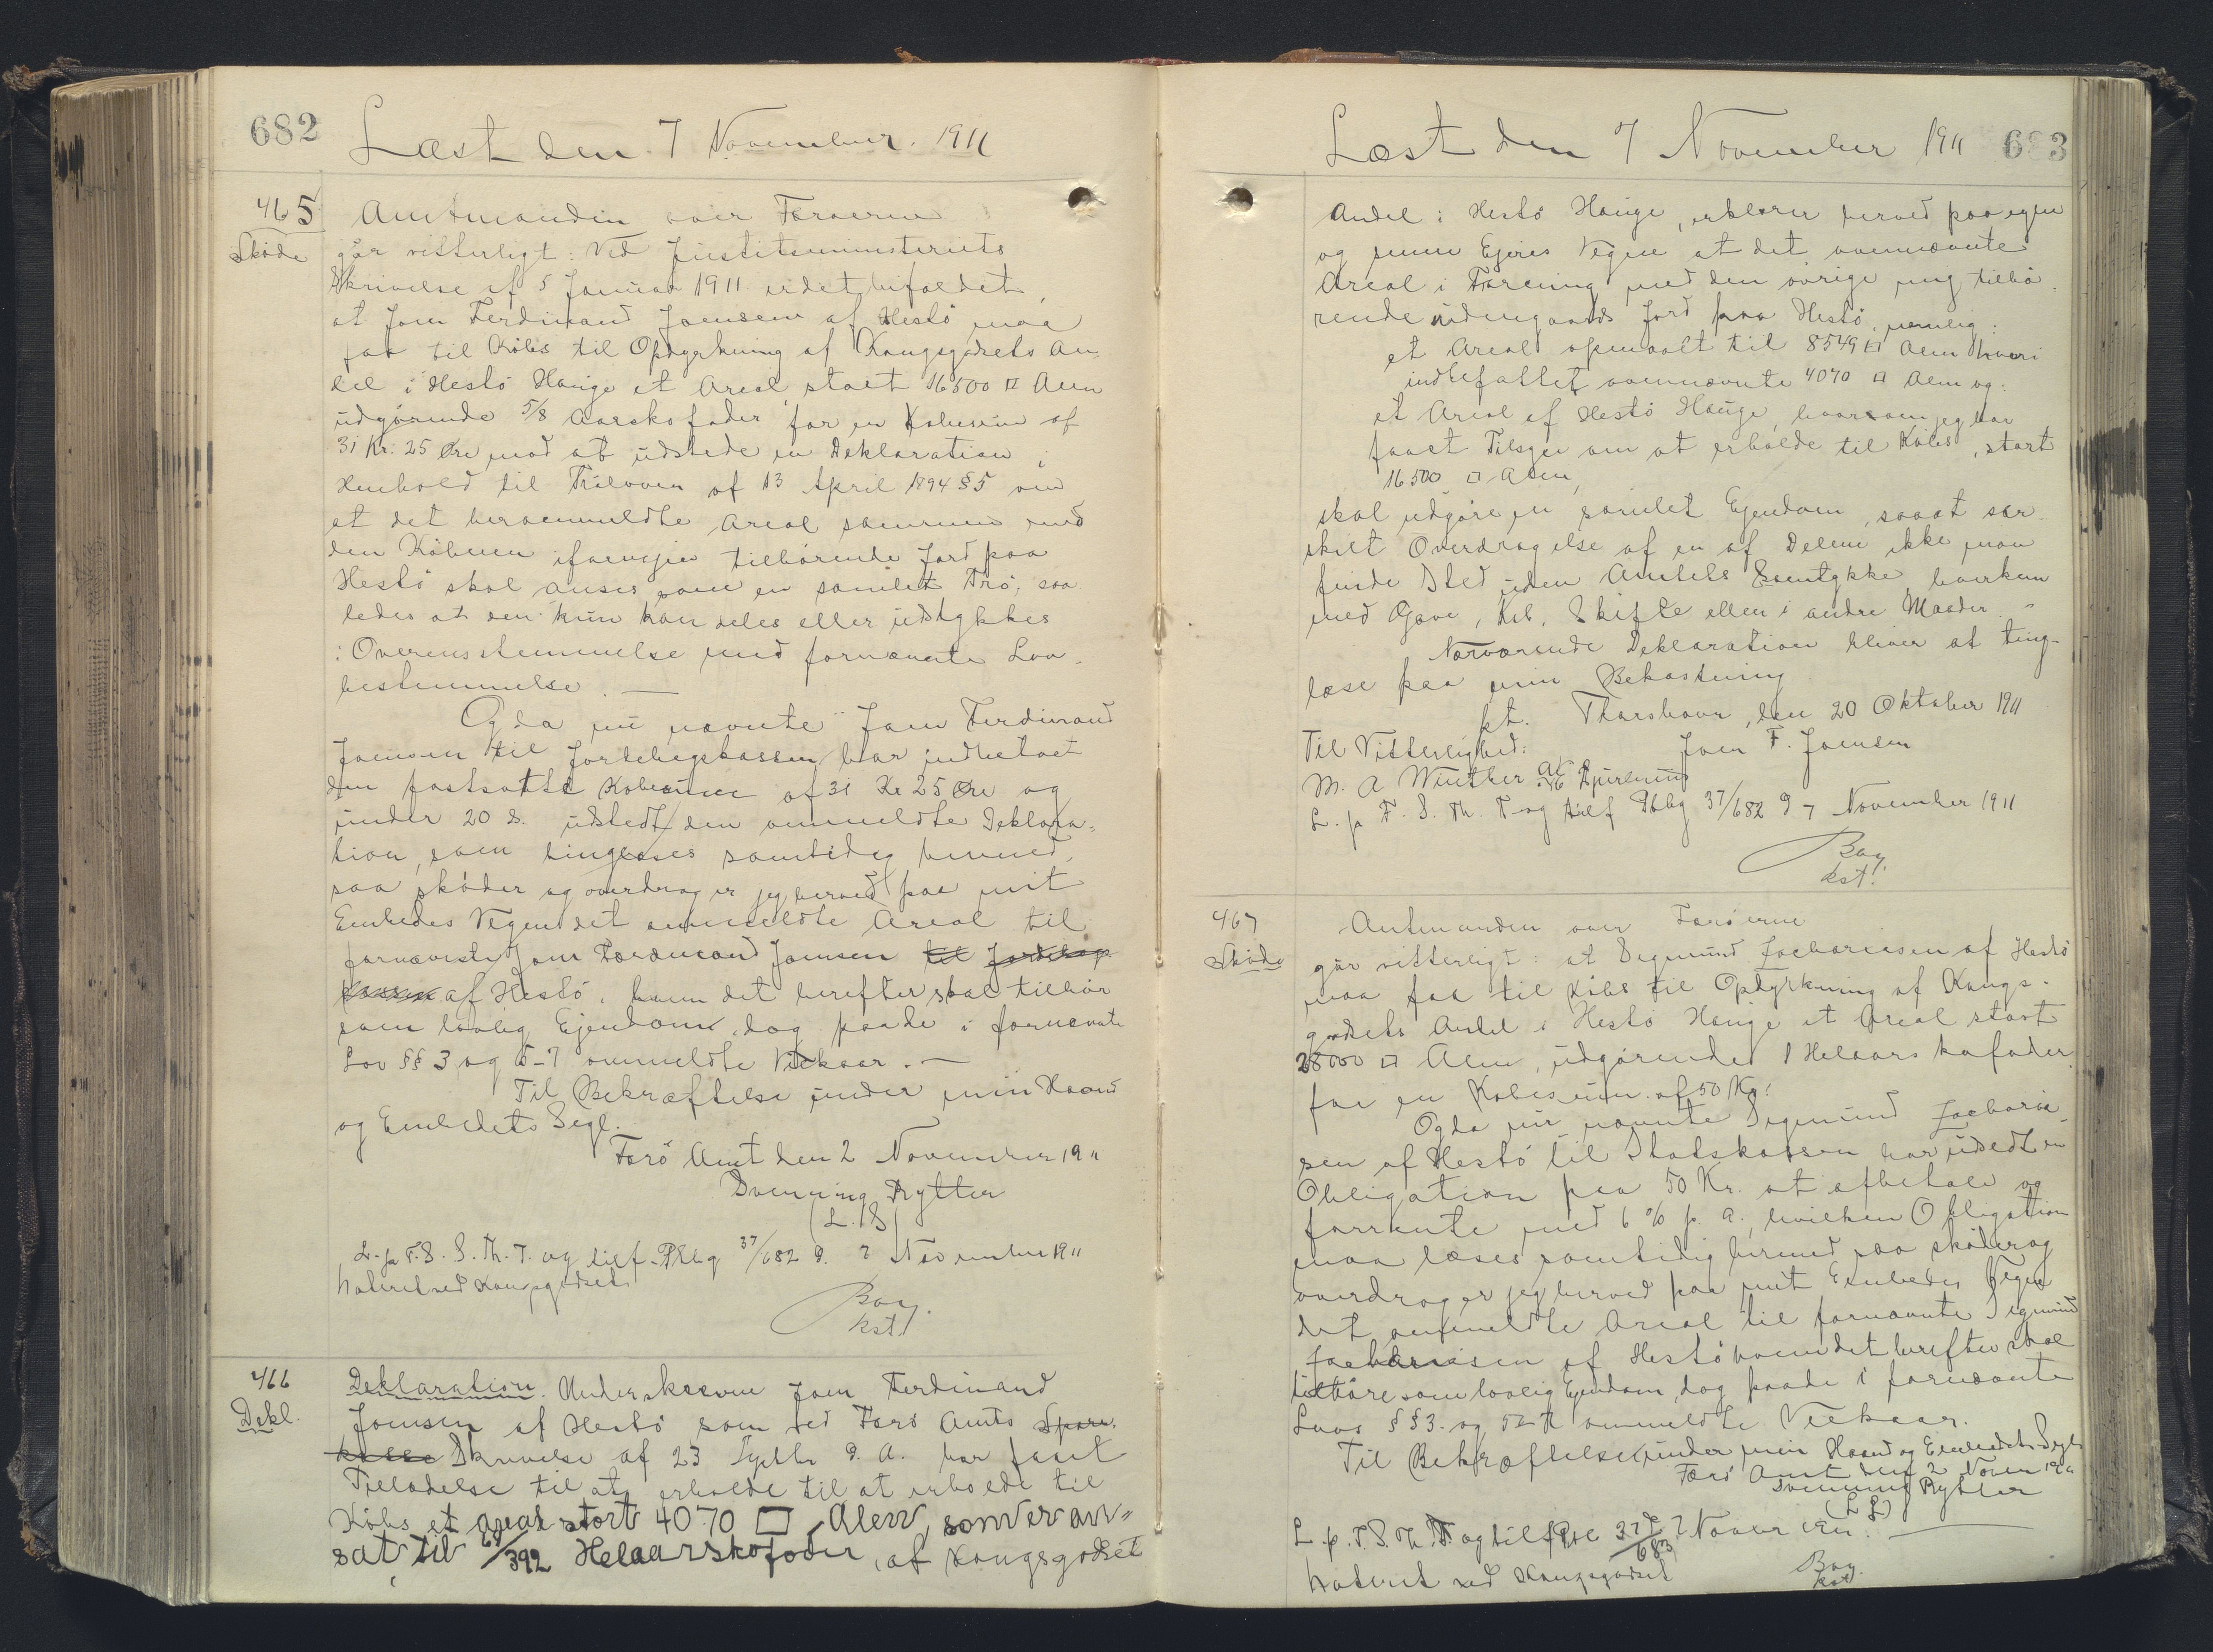 682
Læst den 7 November. 1911
465
Skøde
Amtmanden over Færøerne
gør vitterligt: Ved Justitsministeriets
Skrivelse af 5 Januar 1911 er det bifaldet,
at Joen Ferdinand Joensen af Hestö maa
faa til Købs til Opdyrkning af Kongsgodsets An-
del i Hestö Hauge et Areal stort 16500 □ Alen
udgørende 5/8 Aarskofoder for en Købesum af
31 Kr. 25 Øre mod at udstede en Deklaration i
Henhold til Trøloven af 13 April 1894 § 5 om
at det heromméldte Areal sammen med
den Køberen iforvejen tilhørende Jord paa
Hestö skal anses som en samlet Trø, saa
ledes at den kun kan deles eller udstykkes
i Overensstemmelse med fornævnte Lov-
bestemmelse. —
Og da nu nævnte Joen Ferdinand
Joensen til Jordebogskassen har indbetalt
den fastsatte Købesum af 31 Kr 25 Øre og
under 20 d. udstedt den ommeldte Deklara-
tion, som tinglæses samtidig hermed,
saa skøder og overdrager jeg herved paa mit
Embedes Vegne det ommeldte Areal til
fornævnte Joen Ferdinand Joensen til Jordebogs
kassen af Hestö, ham det herefter skal tilhør
som lovlig Ejendom, dog paa de i fornævnte
Lov §§ 3 og 5-7 ommeldte Vilkaar. —
Til Bekræftelse under min Haand
og Embedets Segl.
Færö Amt den 2 November 1911
Svenning Rytter
(L. S)
L. p F. S. S. Th. T. og tilf. Pthg 37/682 d. 7 November 1911
Noteret ved Kongsgodset
Bay.
kst.
466
Dekl.
Deklaration. Underskrevne Joen Ferdinand
Joensen af Hestö som ved Færö Amts Spare
kasse Skrivelse af 23 Septbr d. A. har faaet
Tilladelse til at erholde til at erholde til
Købs et areal stort 4070 □ Alen, som er an=
sat til 69/392 Helaarskofoder, af Kongsgodset
Læst den 7 November 1911
683
Andel i Hestö Hauge, erklærer herved paa egne
og senere Ejeres Vegne at det ovennævnte
Areal i Forening med den øvrige mig tilhø
rende udengaards Jord paa Hestö, nemlig:
et Areal opmaalt til 8549 □ Alen hvori
indbefattet ovennævnte 4070 □ Alen og:
et Areal af Hestö Hauge, hvorom jeg har
faaet Tilsagn om at erholde til Købs, stort
16500 □ Alen,
skal udgøre en samlet Ejendom, saaat sær
skilt Overdragelse af en af Delene ikke maa
finde Sted uden Amtets Samtykke, hverken
med Gave, Køb, Skifte eller i andre Maader. —
Nærværende Deklaration bliver at ting-
læse paa min Bekostning
pt. Thorshavn, den 20 Oktober 1911
Til Vitterlighed: Joen F. Joensen
M. A Winther
L. p F. S. Th. T og tilf Pthg 37/682 d 7 November 1911
Bay.
kst.
467
Skøde
Amtmanden over Færöerne
gør vitterligt: at Sigmund Zachariasen af Hestö
maa faa til Købs til Opdyrkning af Kongs-
godsets Andel i Hestö Hauge et Areal stort
28000 □ Alen, udgørende 1 Helaars kofoder
for en Købesum af 50 Kr.
Og da nu nævnte Sigmund Zacharia
sen af Hestö til Statskassen har udstedt en
Obligation paa 50 Kr. at afbetale og
forrente med 6 % p. a., hvilken Obligation
maa læses samtidig hermed saa skøder og
overdrager jeg herved paa mit Embedes Vegne
det ommeldte Areal til fornævnte Sigmund
Zachariasen af Hestö ham det herefter skal
tilhøre som lovlig Ejendom, dog paa de i fornævnte
Lovs §§ 3. og 5-7 ommeldte Vilkaar.
Til Bekræftelse under min Haand og Embedets Segl.
Færö Amt den 2 Novem 1911
Svenning Rytter
(L S)
L. p. F. S. Th. T og tilf Pre 37/683 d 7 Novem 1911. —
Noteret ved Kongsgodset
Bay.
kst.